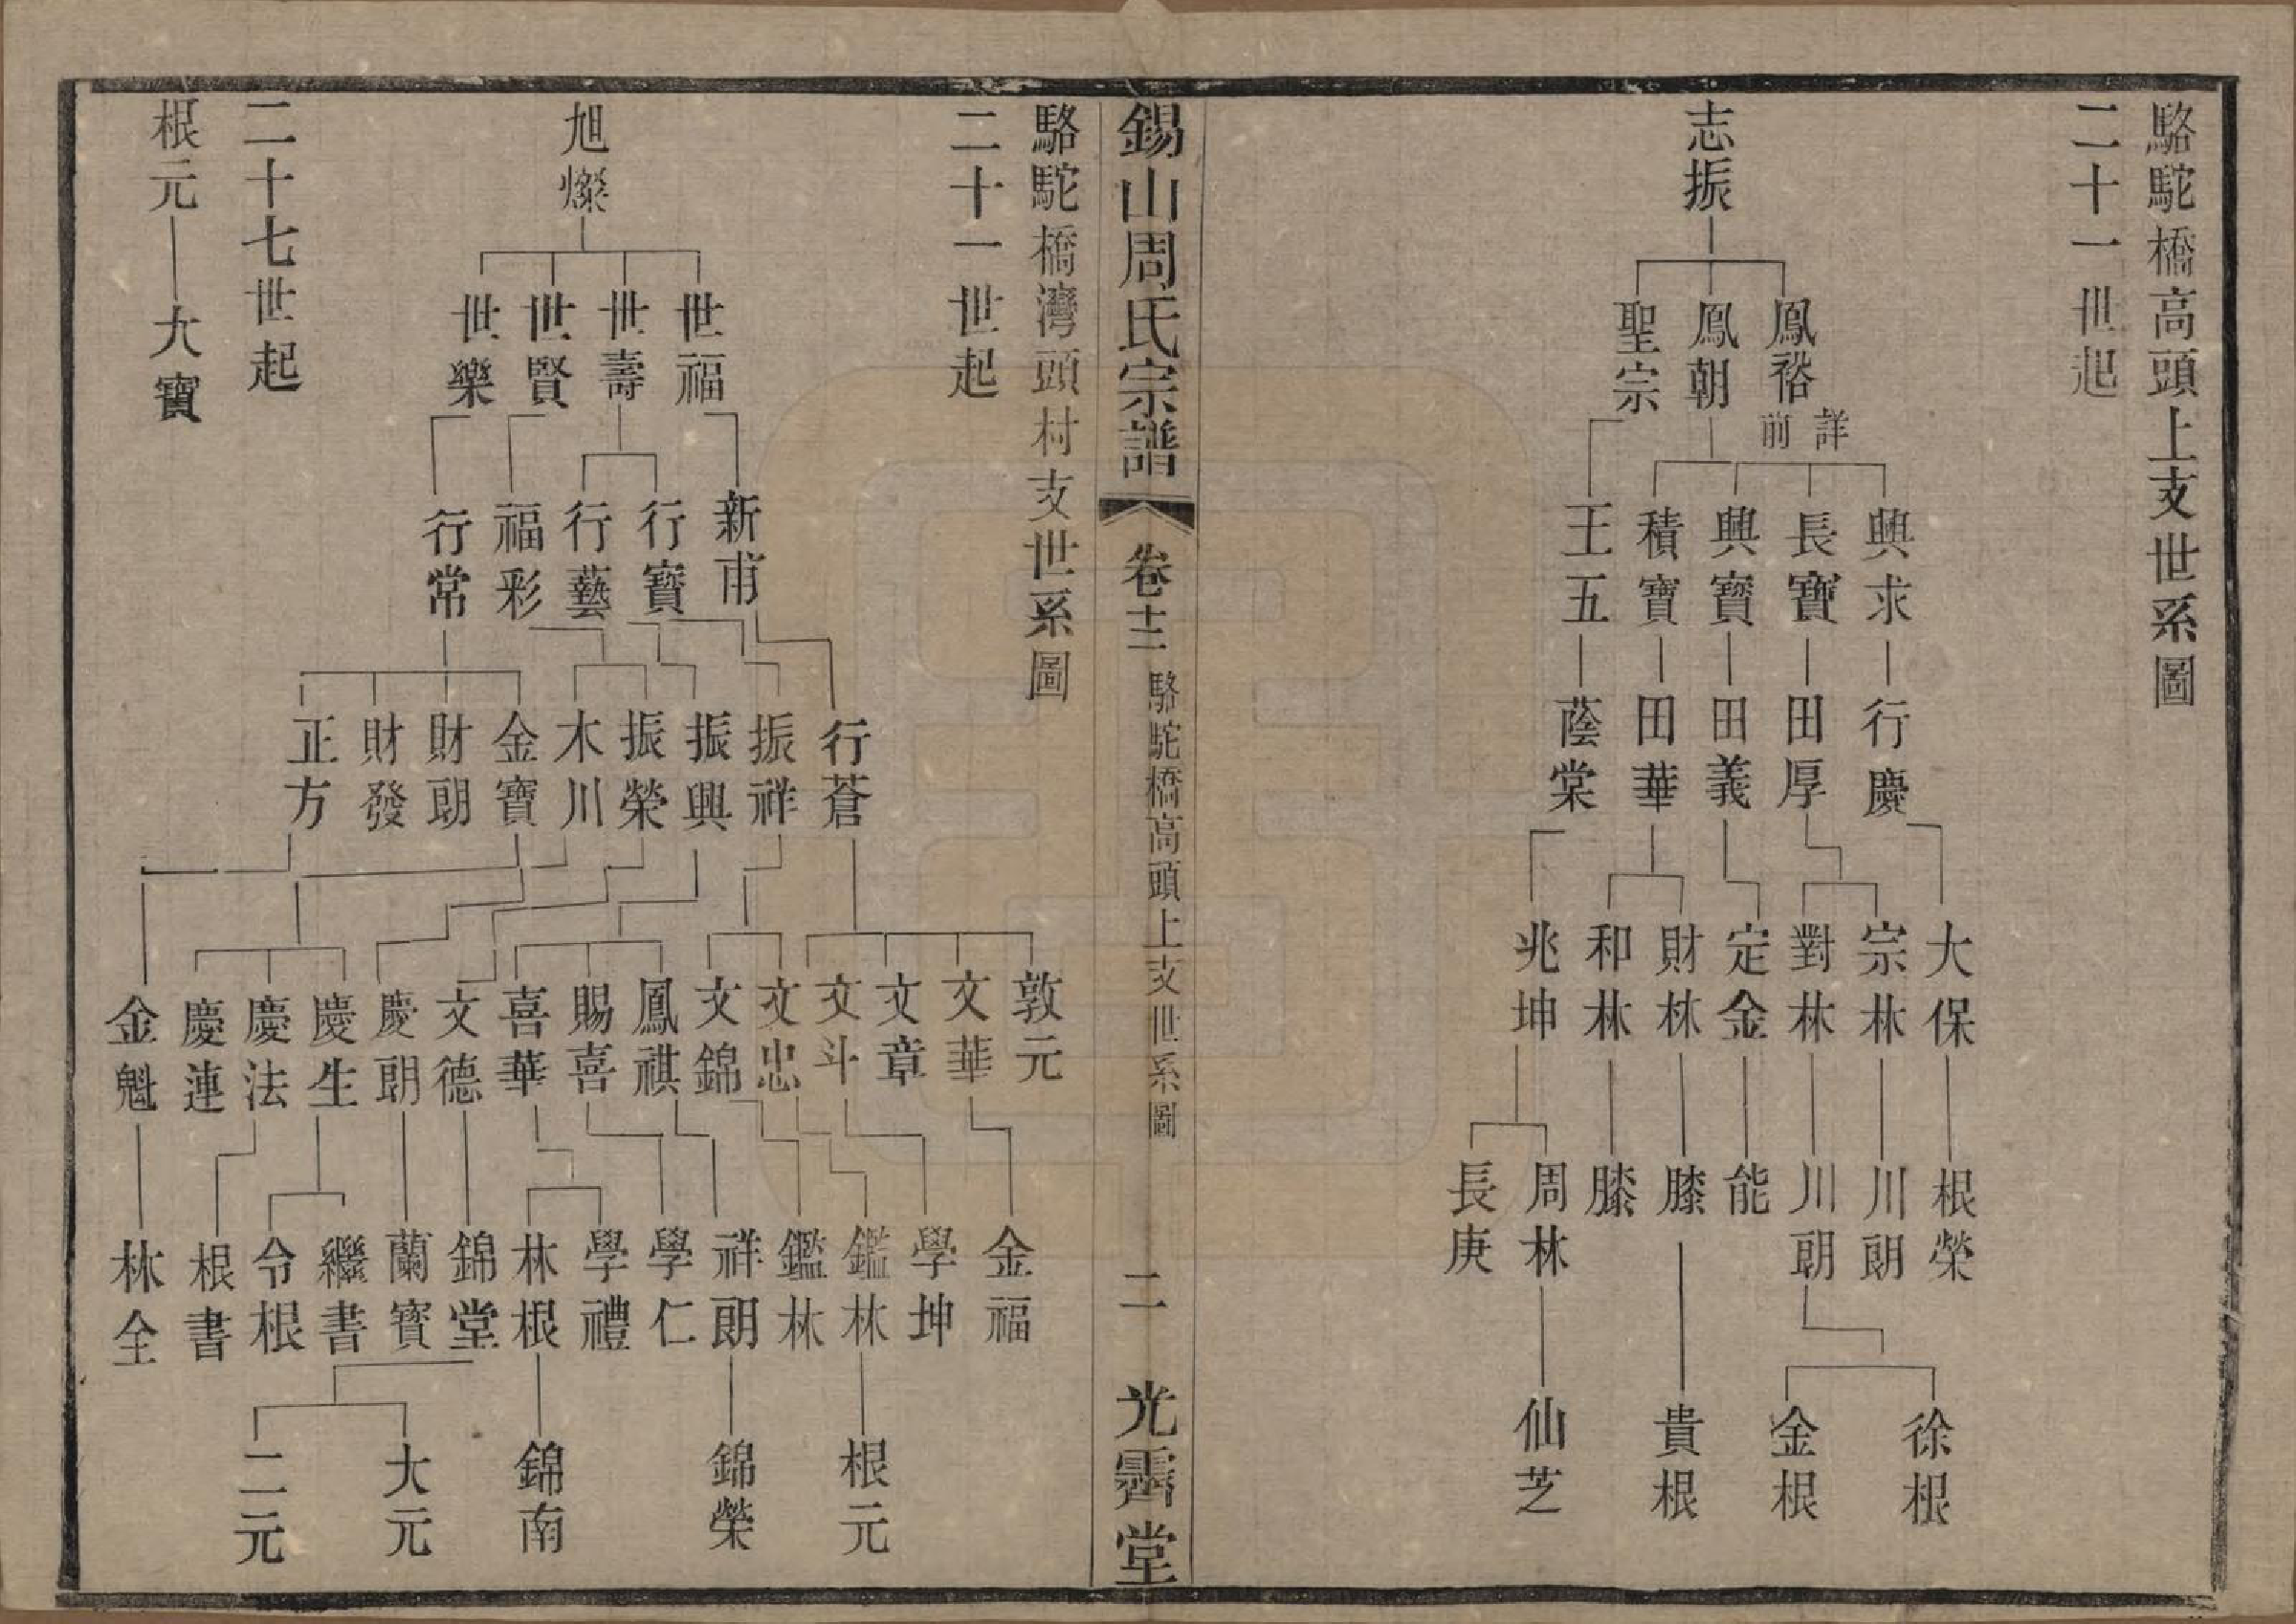 駱駝橋高頭上支世系圖
二十一世起
志振
鳳裕 詳前
鳳朝
聖宗
興求
長寶
興寶
積寶
王五
行慶
田厚
田義
田華
蔭棠
大保
宗林
對林
定金
財林
和林
兆坤
根榮
川朗
川朗
能
膝
膝
周林
長庚
徐根
金根
貴根
仙芝
錫山周氏宗譜
卷十二
駱駝橋高頭上支世系圖
二
光霽堂
駱駝橋灣頭村支世系圖
二十一世起
旭燦
世福
世壽
世賢
世樂
新甫
行寶
行藝
福彩
行常
行蒼
振祥
振興
振榮
木川
金寶
財朗
財發
正方
敦元
文華
文章
文斗
文忠
文錦
鳳祺
賜喜
喜華
文德
慶朗
慶生
慶法
慶連
金魁
金福
學坤
鑑林
鑑林
祥朗
學仁
學禮
林根
錦堂
蘭寶
繼書
令根
根書
林全
根元
錦榮
錦南
大元
二元
二十七世起
根元
大寶